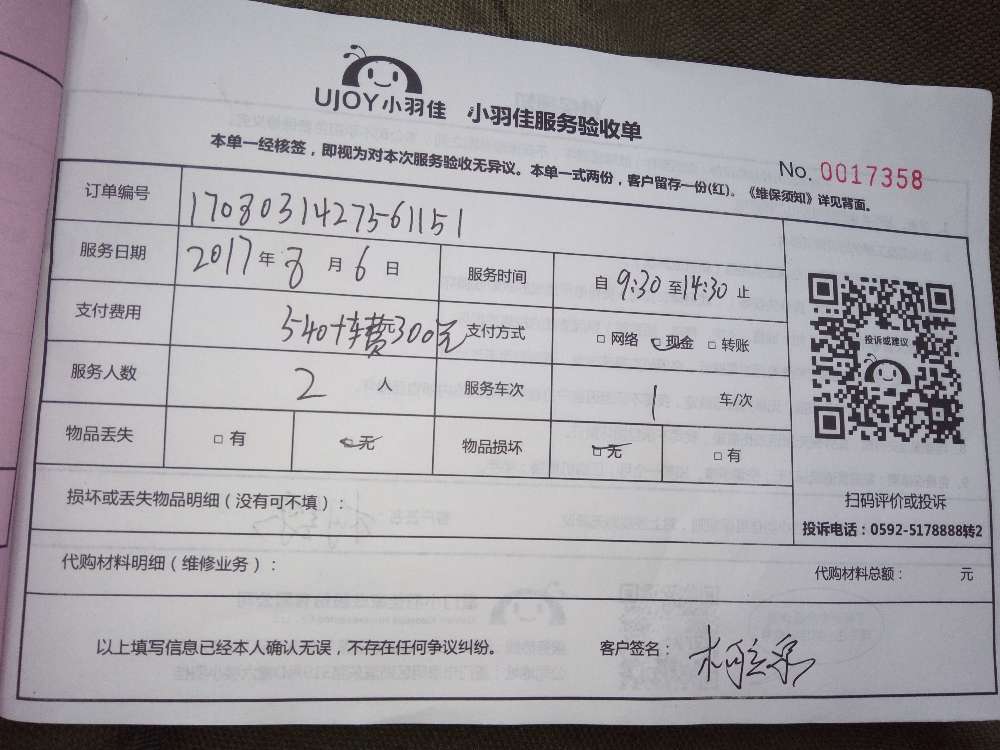 UJOY小羽佳 小羽佳服务验收单
本单一经核签，即视为对本次服务验收无异议。本单一式两份，客户留存一份(红)。《维保须知》详见背面。
No. 0017358
订单编号 170803142756 1151
服务日期 2017年8月6日 服务时间 自9:30至14:30止
支付费用 540+车费300元 支付方式 □网络 □现金 □转账
服务人数 2人 服务车次 1 车/次
物品丢失 □有 □无 物品损坏 □无 □有
投诉或建议
扫码评价或投诉
投诉电话：0592-5178888转2
损坏或丢失物品明细（没有可不填）：
代购材料明细（维修业务）： 代购材料总额： 元
以上填写信息已经本人确认无误，不存在任何争议纠纷。 客户签名：